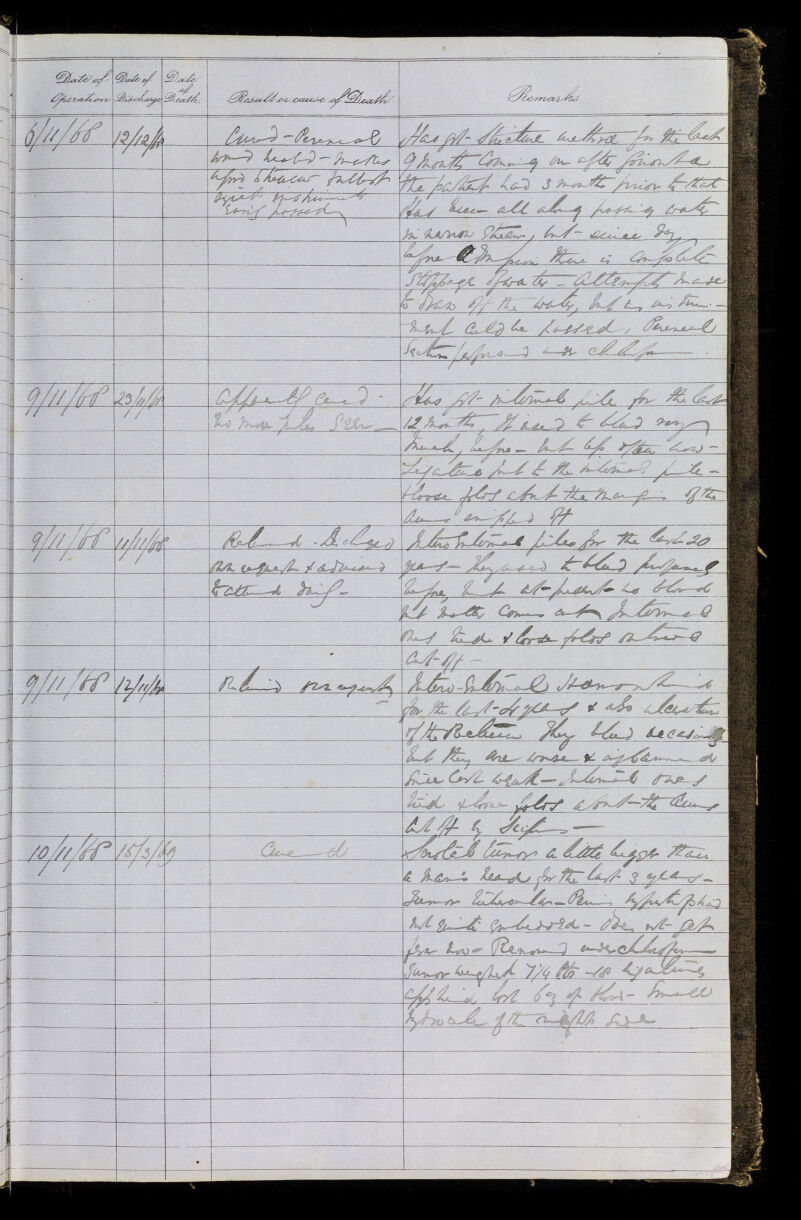 Date of Operation
Date of Discharge
Date of Death
Result or cause of Death
Remarks
6/11/68
12/12/68
Cured - Perineal
wound heald - makes
a good stream
instruments
easily passed
Has got stricture urethra for the last
9 months coming on after gonorrhoea
the patient had 3 months prior to that
Has been all along passing water
in narrow stream, but since day
before admission there is complete
stoppage of water - Attempts made
to draw off the water, but no instru-
ment could be passed, Perineal
Section performed under chloroform
9/11/68
23/11/68
apparently cured -
no more piles seen -
Has got internal pile for the last
12 months, It used to bleed very
much, before - but less often now -
Ligature put to the internal pile -
loose folds about the margin of the
anus snipped off
9/11/68
11/11/68
Relieved - Discharged
own request & advised
to attend daily -
Intero External piles for the last 20
years - They used to bleed profusely
before, but at present no blood
but matter comes out Internal
ones tied & loose folds outside
cut off -
9/11/68
12/11/68
Relieved own request
Intero-External Hemorrhoid
for the last 4 years & also ulceration
of the Rectum They bleed occasionally
but they are worse & inflamed
since last week - Internal ones
tied & loose folds about the anus
cut off by Scissors -
10/11/68
15/3/69
Cured
Scrotal tumor a little bigger than
a man's head for the last 3 years -
Tumor tubercular - Penis hypertrophied
not quite embedded - Does not get
fever now - Removed under chloroform
Tumor weighed 7 1/4 lbs - 18 ligatures
applied lost 6 oz of blood - Small
hydrocele of the right side